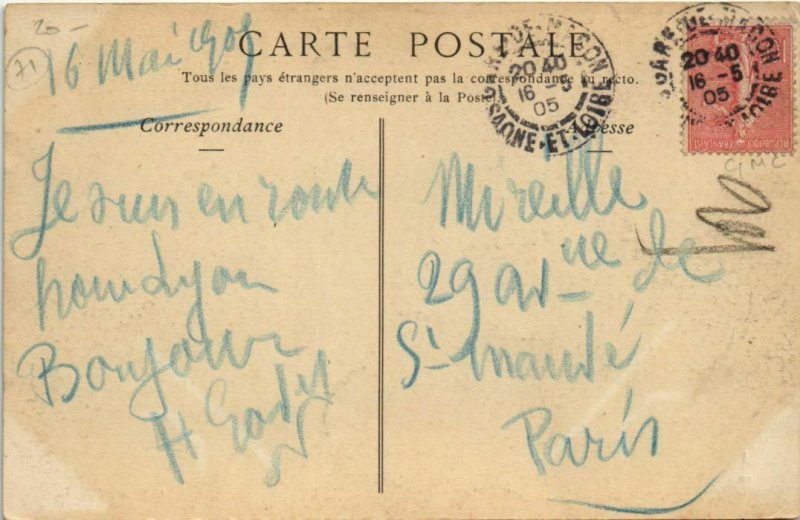 20-
71
16 Mai 1905
CARTE POSTALE
Tous les pays étrangers n'acceptent pas la correspondance au recto.
(Se renseigner à la Poste)
Correspondance
Adresse
Je suis en route
pour Lyon
Bonjour
H Godet
Mireille
29 av_ue de
St mandé
Paris
GARE DE MACON
20 40
16 -5
05
SAONE-ET-LOIRE
GARE DE MACON
20 40
16 -5
05
LOIRE
REPUBLIQUE FRANÇAISE